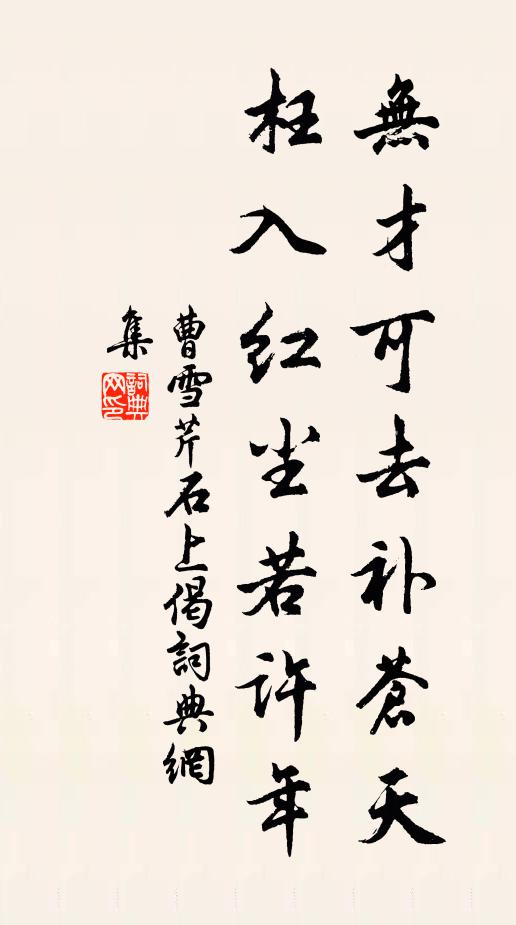 無才可去补蒼天
枉入红尘若许年
曹雪芹石上偈詞典網
集
詞典网印